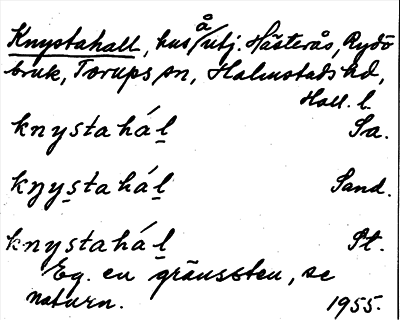 Knystahall, hus å/utj. Hästerås, Rydö
bruk, Torups sn, Halmstads hd,
Hall. l.
knystahál Sa.
kŋystahál Sand.
knystahál St.
Eg. en gränssten, se
naturn. 1955.